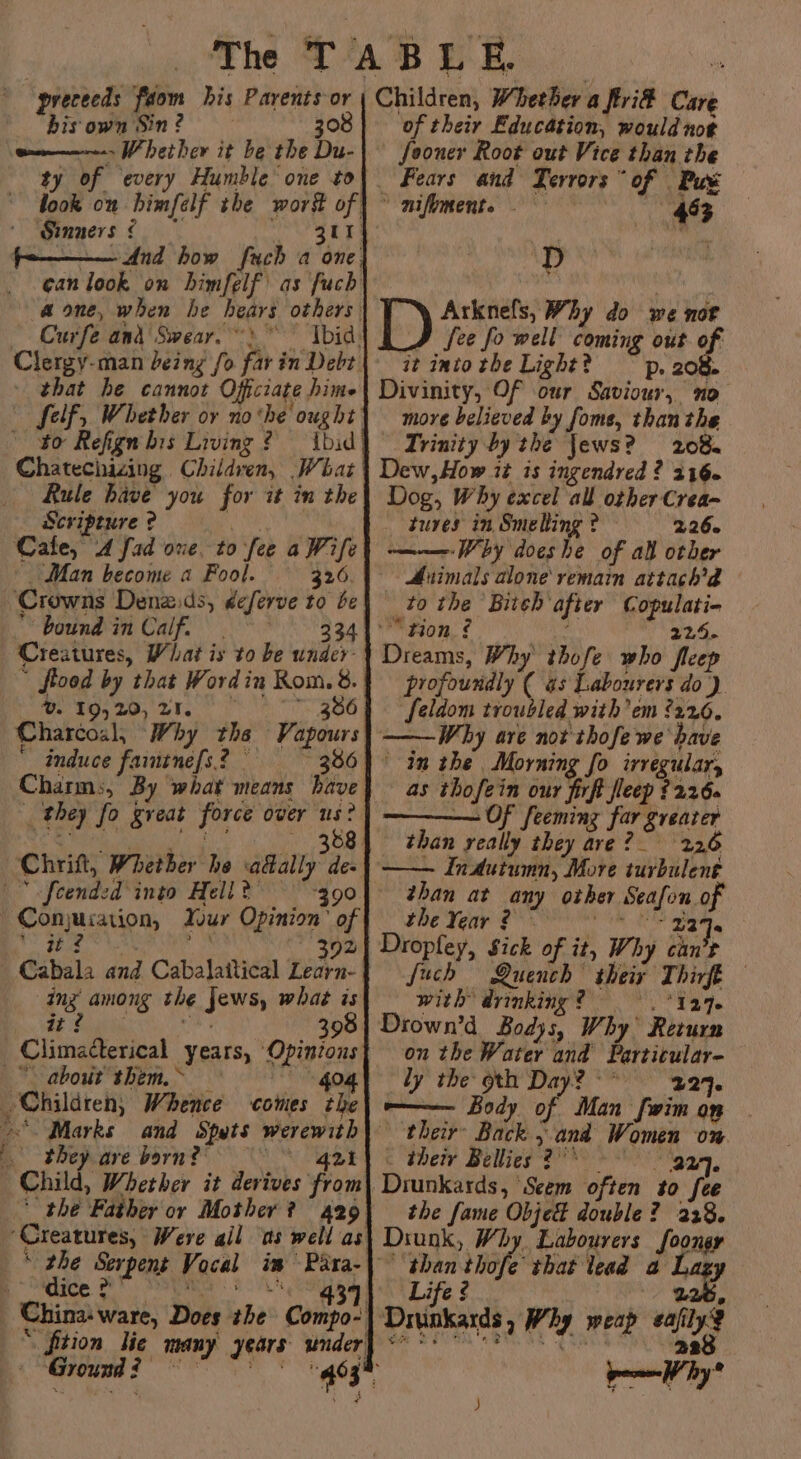 The TABLE.
preceeds from his Parents or
his own Sin? 308
—— Whether it be the Du-
ty of every Humble one to
look on himſelf the worſt of
Sinners? 311
—— And how ſuch a one
can look on himſelf as ſuch
a one, when he hears others
Curſe and Swear. Ibid
Clergy-man being ſo far in Debt
that he cannot Officiate him-
ſelf, Whether or no he ought
to Reſign his Living? ibid
Chatechizing Children, What
Rule have you for it in the
Scripture?
Caſe, A ſad one, to ſee a Wiſe
Man become a Fool. 326
Crowns Denæids, deſerve to be
bound in Calf. 334
Creatures, What is to be under-
ſtood by that Word in Rom. 8.
v. 19, 20, 21. 386
Charcoal, Why the Vapours
induce faintneſs? 386
Charms, By what means have
they ſo great force over us?
388
Chriſt, Whether he actally de-
ſcended into Hell? 390
Conjuration, Your Opinion of
it? 392
Cabala and Cabalaſtical Learn-
ing among the Jews, what is
it? 398
Climacterical years, Opinions
about them. 404
Children, Whence comes the
Marks and Spots werewith
they are born? 421
Child, Whether it derives from
the Father or Mother? 429
Creatures, Were all as well as
the Serpent Vocal in Para-
dice? 437
China-ware, Does the Compo-
ſition lie many years under
Ground? 463
Children, Whether a ſtrict Care
of their Education, would not
ſooner Root out Vice than the
Fears and Terrors of Pu-
niſhment. 463
D
DArkneſs, Why do we not
ſee ſo well coming out of
it into the Light? p. 208.
Divinity, Of our Saviour, no
more believed by ſome, than the
Trinity by the Jews? 208.
Dew, How it is ingendred? 216.
Dog, Why excel all other Crea-
tures in Smelling? 226.
—— Why does he of all other
Animals alone remain attach'd
to the Bitch after Copulati-
tion? 226.
Dreams, Why thoſe who ſleep
profoundly (as Labourers do)
ſeldom troubled with'em? 226.
—— Why are not thoſe we have
in the Morning ſo irregular,
as thoſe in our firſt ſleep? 226.
—— Of ſeeming far greater
than really they are? 226
—— In Autumn, More turbulent
than at any other Seaſon of
the Year? 227.
Dropſey, Sick of it, Why can't
ſuch Quench their Thirſt
with drinking? 127.
Drown'd Bodys, Why Return
on the Water and Particular-
ly the 9th Day? 227.
—— Body of Man ſwim on
their Back, and Women on
their Bellies? 227.
Drunkards, Seem often to ſee
the ſame Object double? 228.
Drunk, Why Labourers ſooner
than thoſe that lead a Lazy
Life? 228,
Drunkards, Why weap eaſily?
228
—— Why